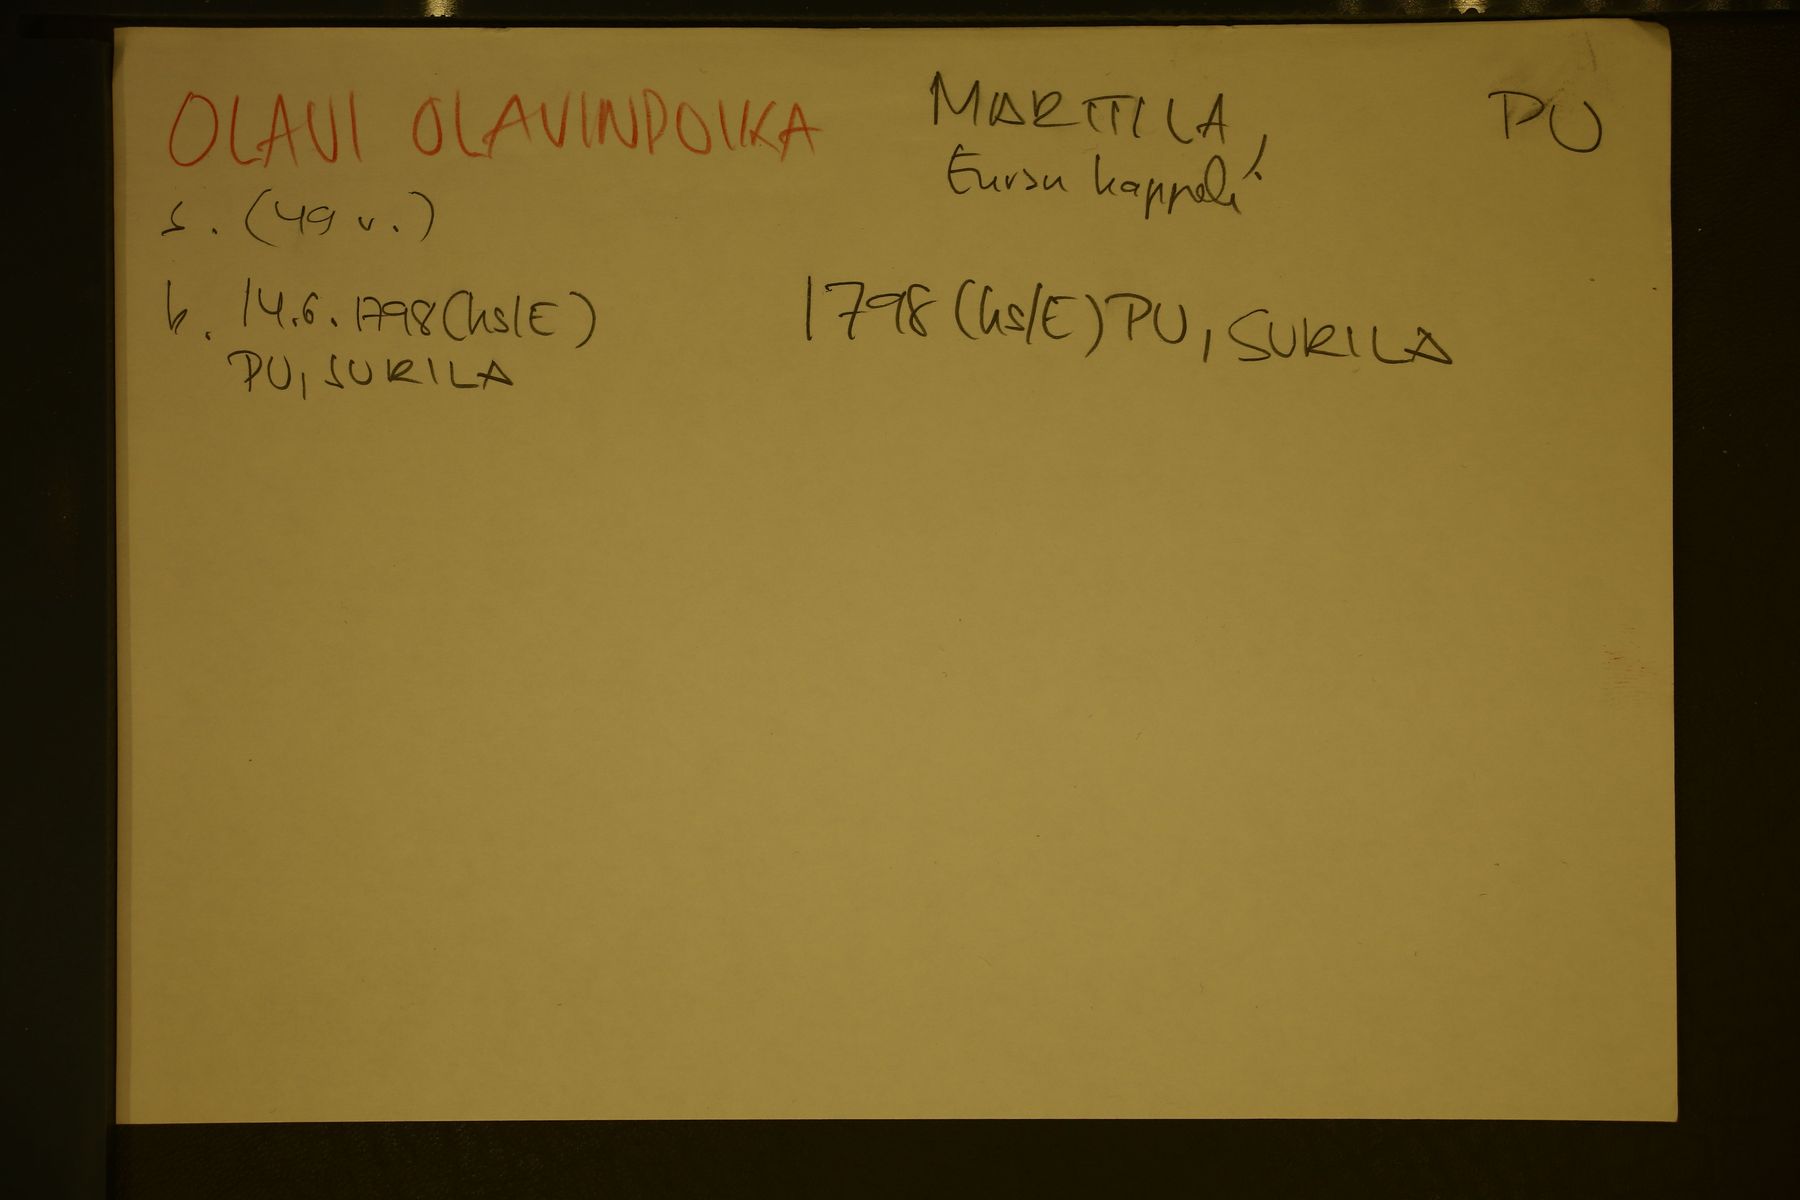 OLAVI OLAVINPOIKA MARTTILA, PU
Euran kappeli!
s. (49 v.)
k. 14.6.1798 (hs/E) 1798 (hs/E) PU, SURILA
PU, SURILA